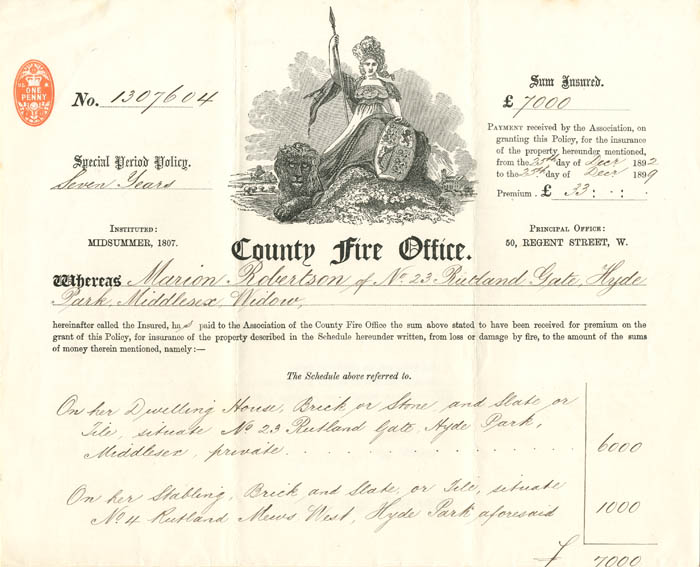 ONE
PENNY
No. 1307604
Special Period Policy.
Seven Years
INSTITUTED:
MIDSUMMER, 1807.
Sum Insured.
£ 7000
PAYMENT received by the Association, on
granting this Policy, for the insurance
of the property hereunder mentioned,
from the 25th day of Decr 1892
to the 25th day of Decr 1899
Premium £ 33 : :
PRINCIPAL OFFICE:
50, REGENT STREET, W.
County Fire Office.
Whereas Marion Robertson of No. 23 Rutland Gate, Hyde
Park, Middlesex, Widow,
hereinafter called the Insured, has paid to the Association of the County Fire Office the sum above stated to have been received for premium on the
grant of this Policy, for insurance of the property described in the Schedule hereunder written, from loss or damage by fire, to the amount of the sums
of money therein mentioned, namely:—
The Schedule above referred to.
On her Dwelling House, Brick or Stone and Slate or
Tile, situate No. 23 Rutland Gate, Hyde Park,
Middlesex, private . . . . . . . . . . . . . . . 6000
On her Stabling, Brick and Slate or Tile, situate
No. 4 Rutland Mews West, Hyde Park aforesaid 1000
£ 7000